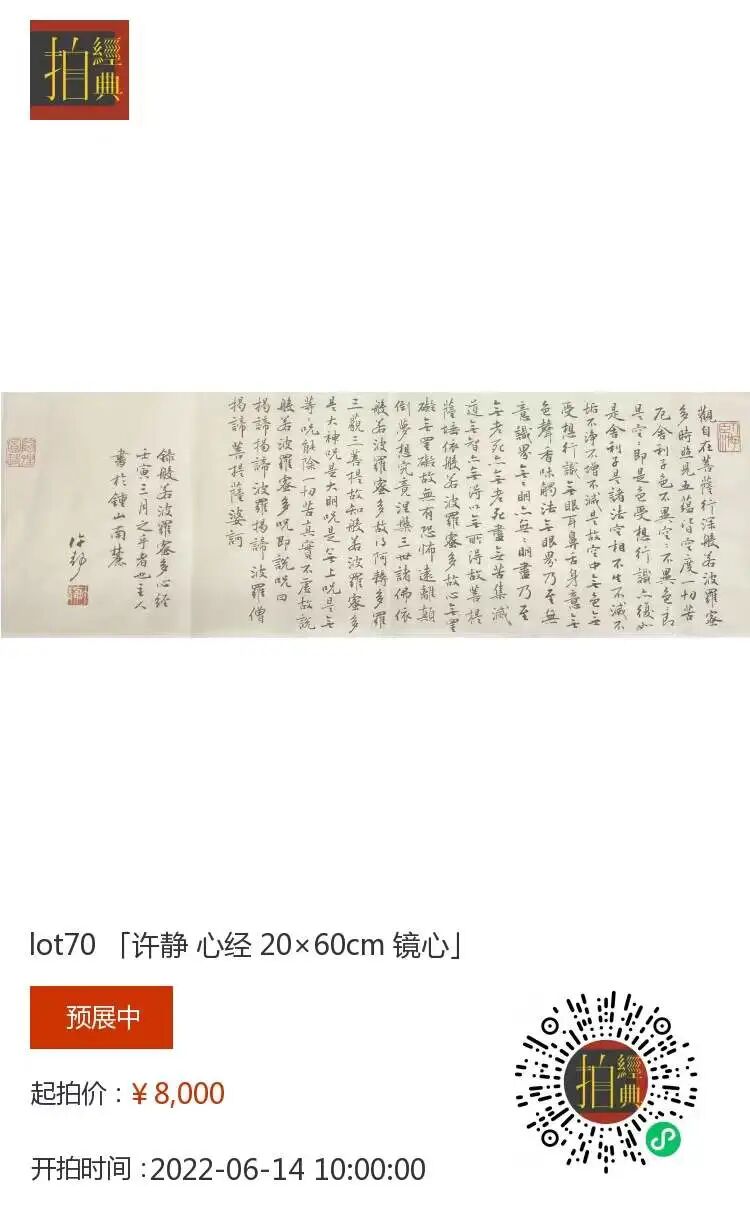 拍
經典
觀自在菩薩行深般若波羅蜜
多時照見五蘊皆空度一切苦
厄舍利子色不異空〻不異色即
是空〻即是色受想行識亦復如
是舍利子是諸法空相不生不滅不
垢不淨不增不減是故空中無色無
受想行識無眼耳鼻舌身意無
色聲香味觸法無眼界乃至無
意識界無〻明亦無〻明盡乃至
無老死亦無老死盡無苦集滅
道無智亦無得以無所得故菩提
薩埵依般若波羅蜜多故心無罣
礙無罣礙故無有恐怖遠離顛
倒夢想究竟涅槃三世諸佛依
般若波羅蜜多故得阿耨多羅
三藐三菩提故知般若波羅蜜多
是大神咒是大明咒是無上咒是無
等〻咒能除一切苦真實不虛故說
般若波羅蜜多咒即說咒曰
揭諦揭諦波羅揭諦波羅僧
揭諦菩提薩婆訶
錄般若波羅蜜多心經
壬寅三月之乎者也主人
書於鍾山南麓
许静
lot70 「许静 心经 20×60cm 镜心」
预展中
起拍价：¥ 8,000
开拍时间 : 2022-06-14 10:00:00
拍
經典